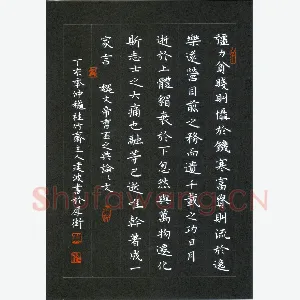 貧賤則懾於饑寒富貴則流於逸
樂遂營目前之務而遺千載之功日月
逝於上體貌衰於下忽然與萬物遷化
斯志士之大痛也融等已逝唯幹著成一
家言
文帝曹丕之典論論文
齋主人建波書於
Shufawang.CN